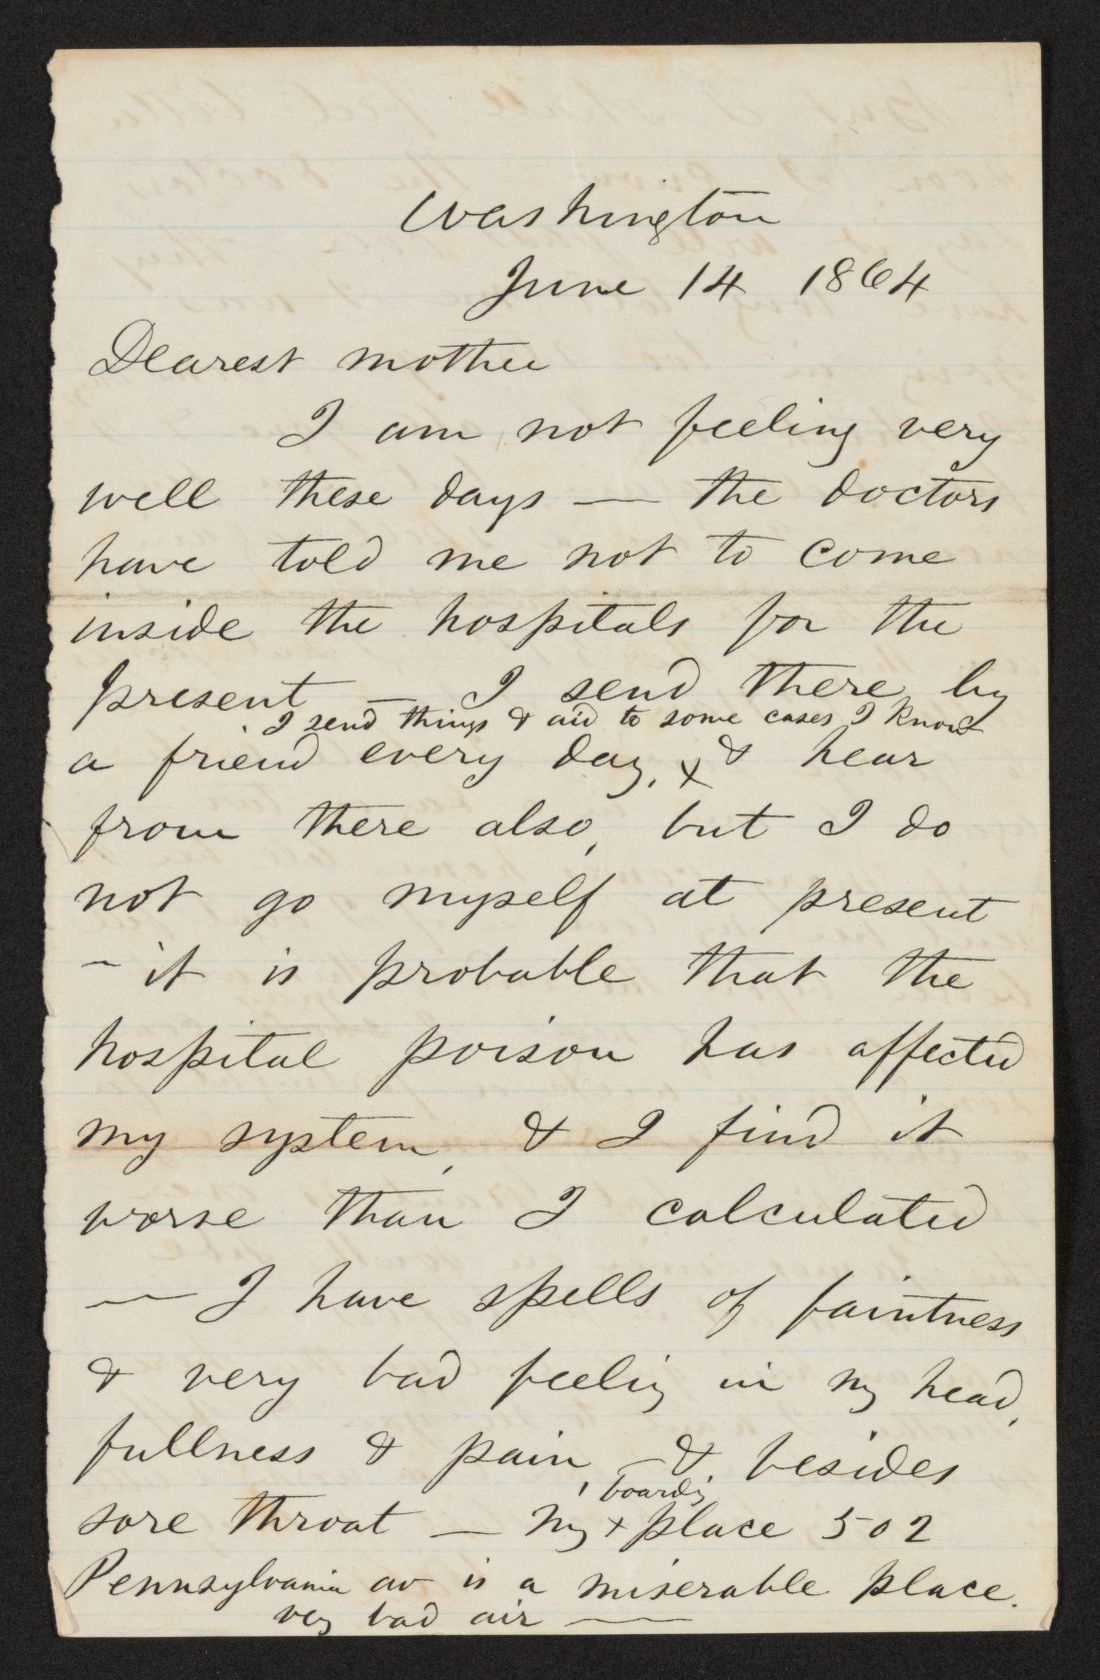 Washington
June 14 1864
Dearest mother
I am not feeling very
well these days — the doctors
have told me not to come
inside the hospitals for the
present — I send there by
I send things & aid to some cases I know
a friend every day, x & hear
from there also, but I do
not go myself at present
– it is probable that the
hospital poison has affected
my system, & I find it
worse than I calculated
— I have spells of faintness
& very bad feeling in my head,
fullness & pain, – & besides
boarding
sore throat — my x place 502
Pennsylvania av is a miserable place.
very bad air —